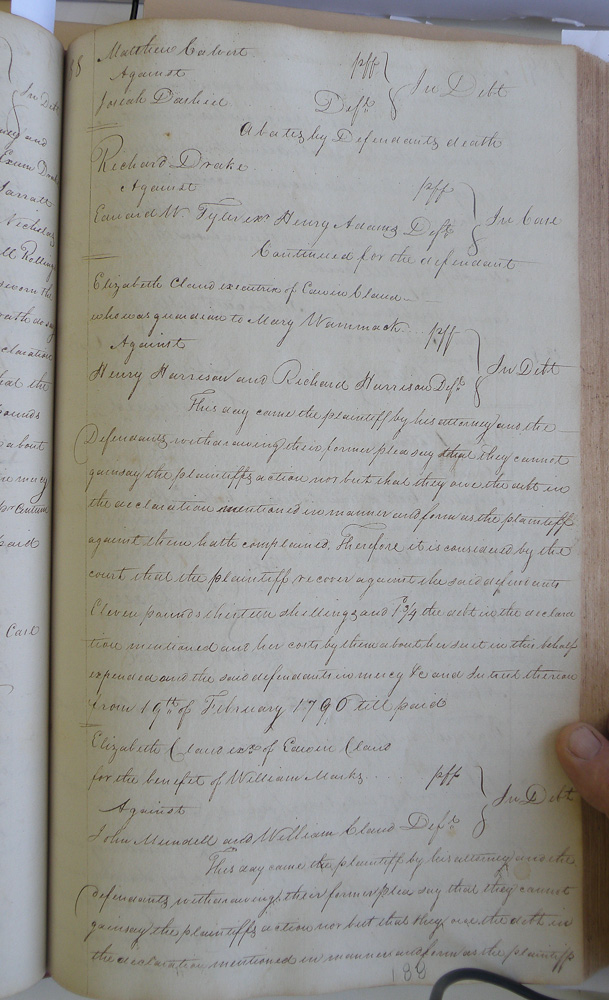 Matthew Calvert pff
Against In Debt
Josiah Dashiel Deft
Abates by Defendants death
Richard Drake
Against pff
Edward W. Tyler exr Henry Adams Deft In Case
Continued for the defendant
Elizabeth Claud executrix of Edwin Claud
who was guardian to Mary Wammack pff
Against In Debt
Henry Harrison and Richard Harrison Defts
This day came the plaintiff by his attorney and the
Defendants withdrawing their former plea say that they cannot
gainsay the plaintiffs action nor but that they owe the debt in
the declaration mentioned in manner and form as the plaintiff
against them hath complained. Therefore it is considered by the
court that the plaintiff recover against the said defendants
Eleven pounds thirteen shillings and the debt in the declara
tion mentioned and her costs by them about her suit in this behalf
expended and the said defendants in mercy &c and Interest thereon
from 19th of February 1790 till paid
Elizabeth Claud exx of Edwin Claud
for the benefit of William Marks pff
Against In Debt
John Mundell and William Claud Defts
This day came the plaintiff by his attorney and the
defendants withdrawing their former plea say that they cannot
gainsay the plaintiffs action nor but that they owe the debt in
the declaration mentioned in manner and form as the plaintiff
188
In Debt
and
Nicholas
sworn the
declaration
that the
pounds
about
in mercy
pr Centum
paid
Case